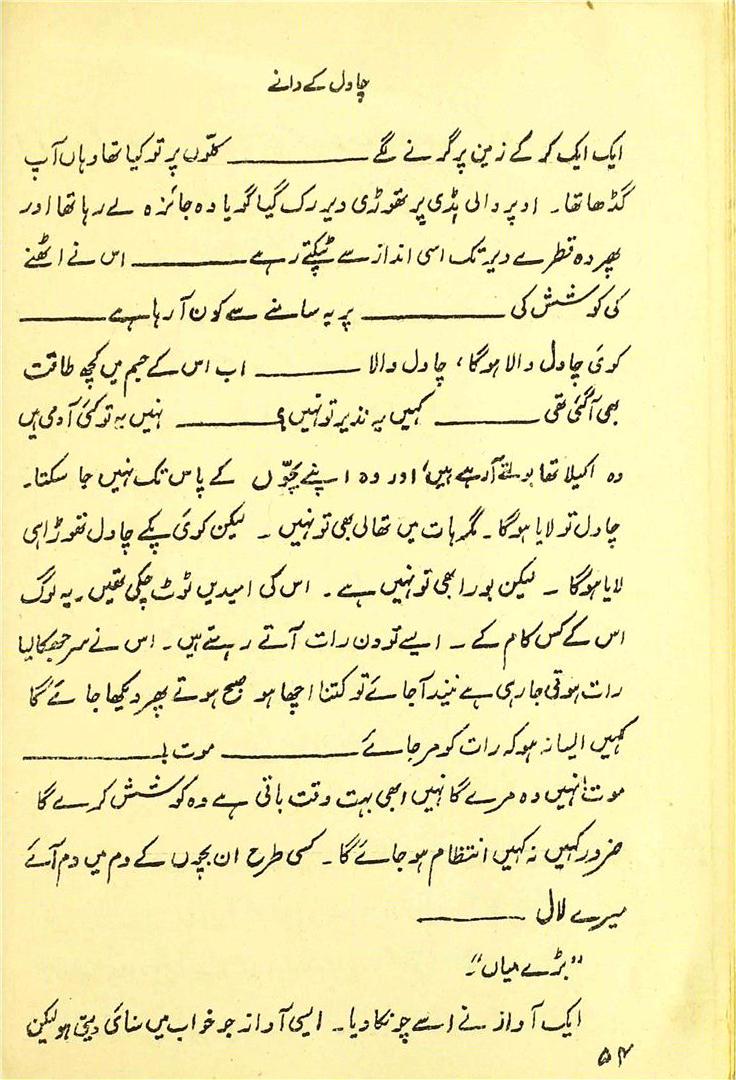 چاول کے دانے
ایک ایک کر کے زمین پر گرنے لگے ــــــــــ کلّوں پر تو کیا تھا وہاں آپ
گڈھا تھا۔ اوپر والی ہڈی پر تھوڑی دیر رک گیا گویا وہ جائزہ لے رہا تھا اور
پھر وہ قطرے دیر تک اسی انداز سے ٹپکتے رہے ــــــــــ اس نے اٹھنے
کی کوشش کی ــــــــــ پر یہ سامنے سے کون آ رہا ہے ــــــــــ
کوئی چاول والا ہوگا، چاول والا ــــــــــ اب اس کے جسم میں کچھ طاقت
بھی آ گئی تھی ــــــــــ کہیں یہ نذیر تو نہیں؟ ــــــــــ نہیں یہ تو کئی آدمی ہیں
وہ اکیلا تھا بولتے آ رہے ہیں، اور وہ اپنے بچّوں کے پاس تک نہیں جا سکتا۔
چاول تو لایا ہوگا۔ مگر ہات میں تھالی بھی تو نہیں۔ لیکن کوئی پکے چاول تھوڑا ہی
لایا ہوگا۔ لیکن بورا بھی تو نہیں ہے۔ اس کی امیدیں ٹوٹ چکی تھیں۔ یہ لوگ
اس کے کس کام کے۔ ایسے تو دن رات آتے رہتے ہیں۔ اس نے سر جھکا لیا
رات ہوتی جا رہی ہے نیند آ جائے تو کتنا اچھا ہو صبح ہوتے پھر دیکھا جائے گا
کہیں ایسا نہ ہو کہ رات کو مر جائے ــــــــــ موت! ــــــــــ
موت! نہیں وہ مرے گا نہیں ابھی بہت وقت باقی ہے وہ کوشش کرے گا
ضرور کہیں نہ کہیں انتظام ہو جائے گا۔ کسی طرح ان بچوں کے دم میں دم آئے
میرے لال ــــــــــ
"بڑے میاں"۔
ایک آواز نے اسے چونکا دیا۔ ایسی آواز جو خواب میں سنائی دیتی ہو لیکن